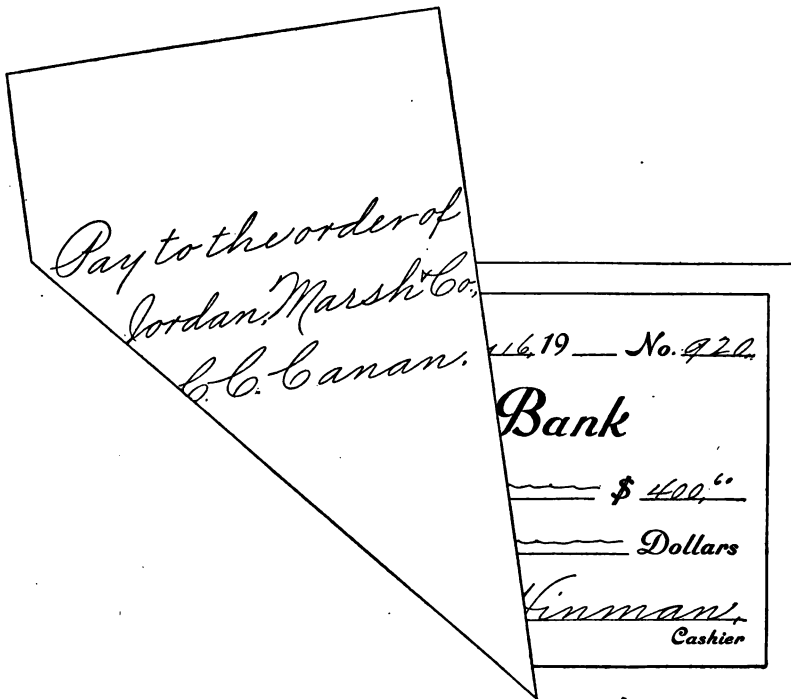 Pay to the order of
Jordan, Marsh & Co.,
C. C. Canan.
16, 19 No. 920.
Bank
$ 400.60
Dollars
Hinman,
Cashier